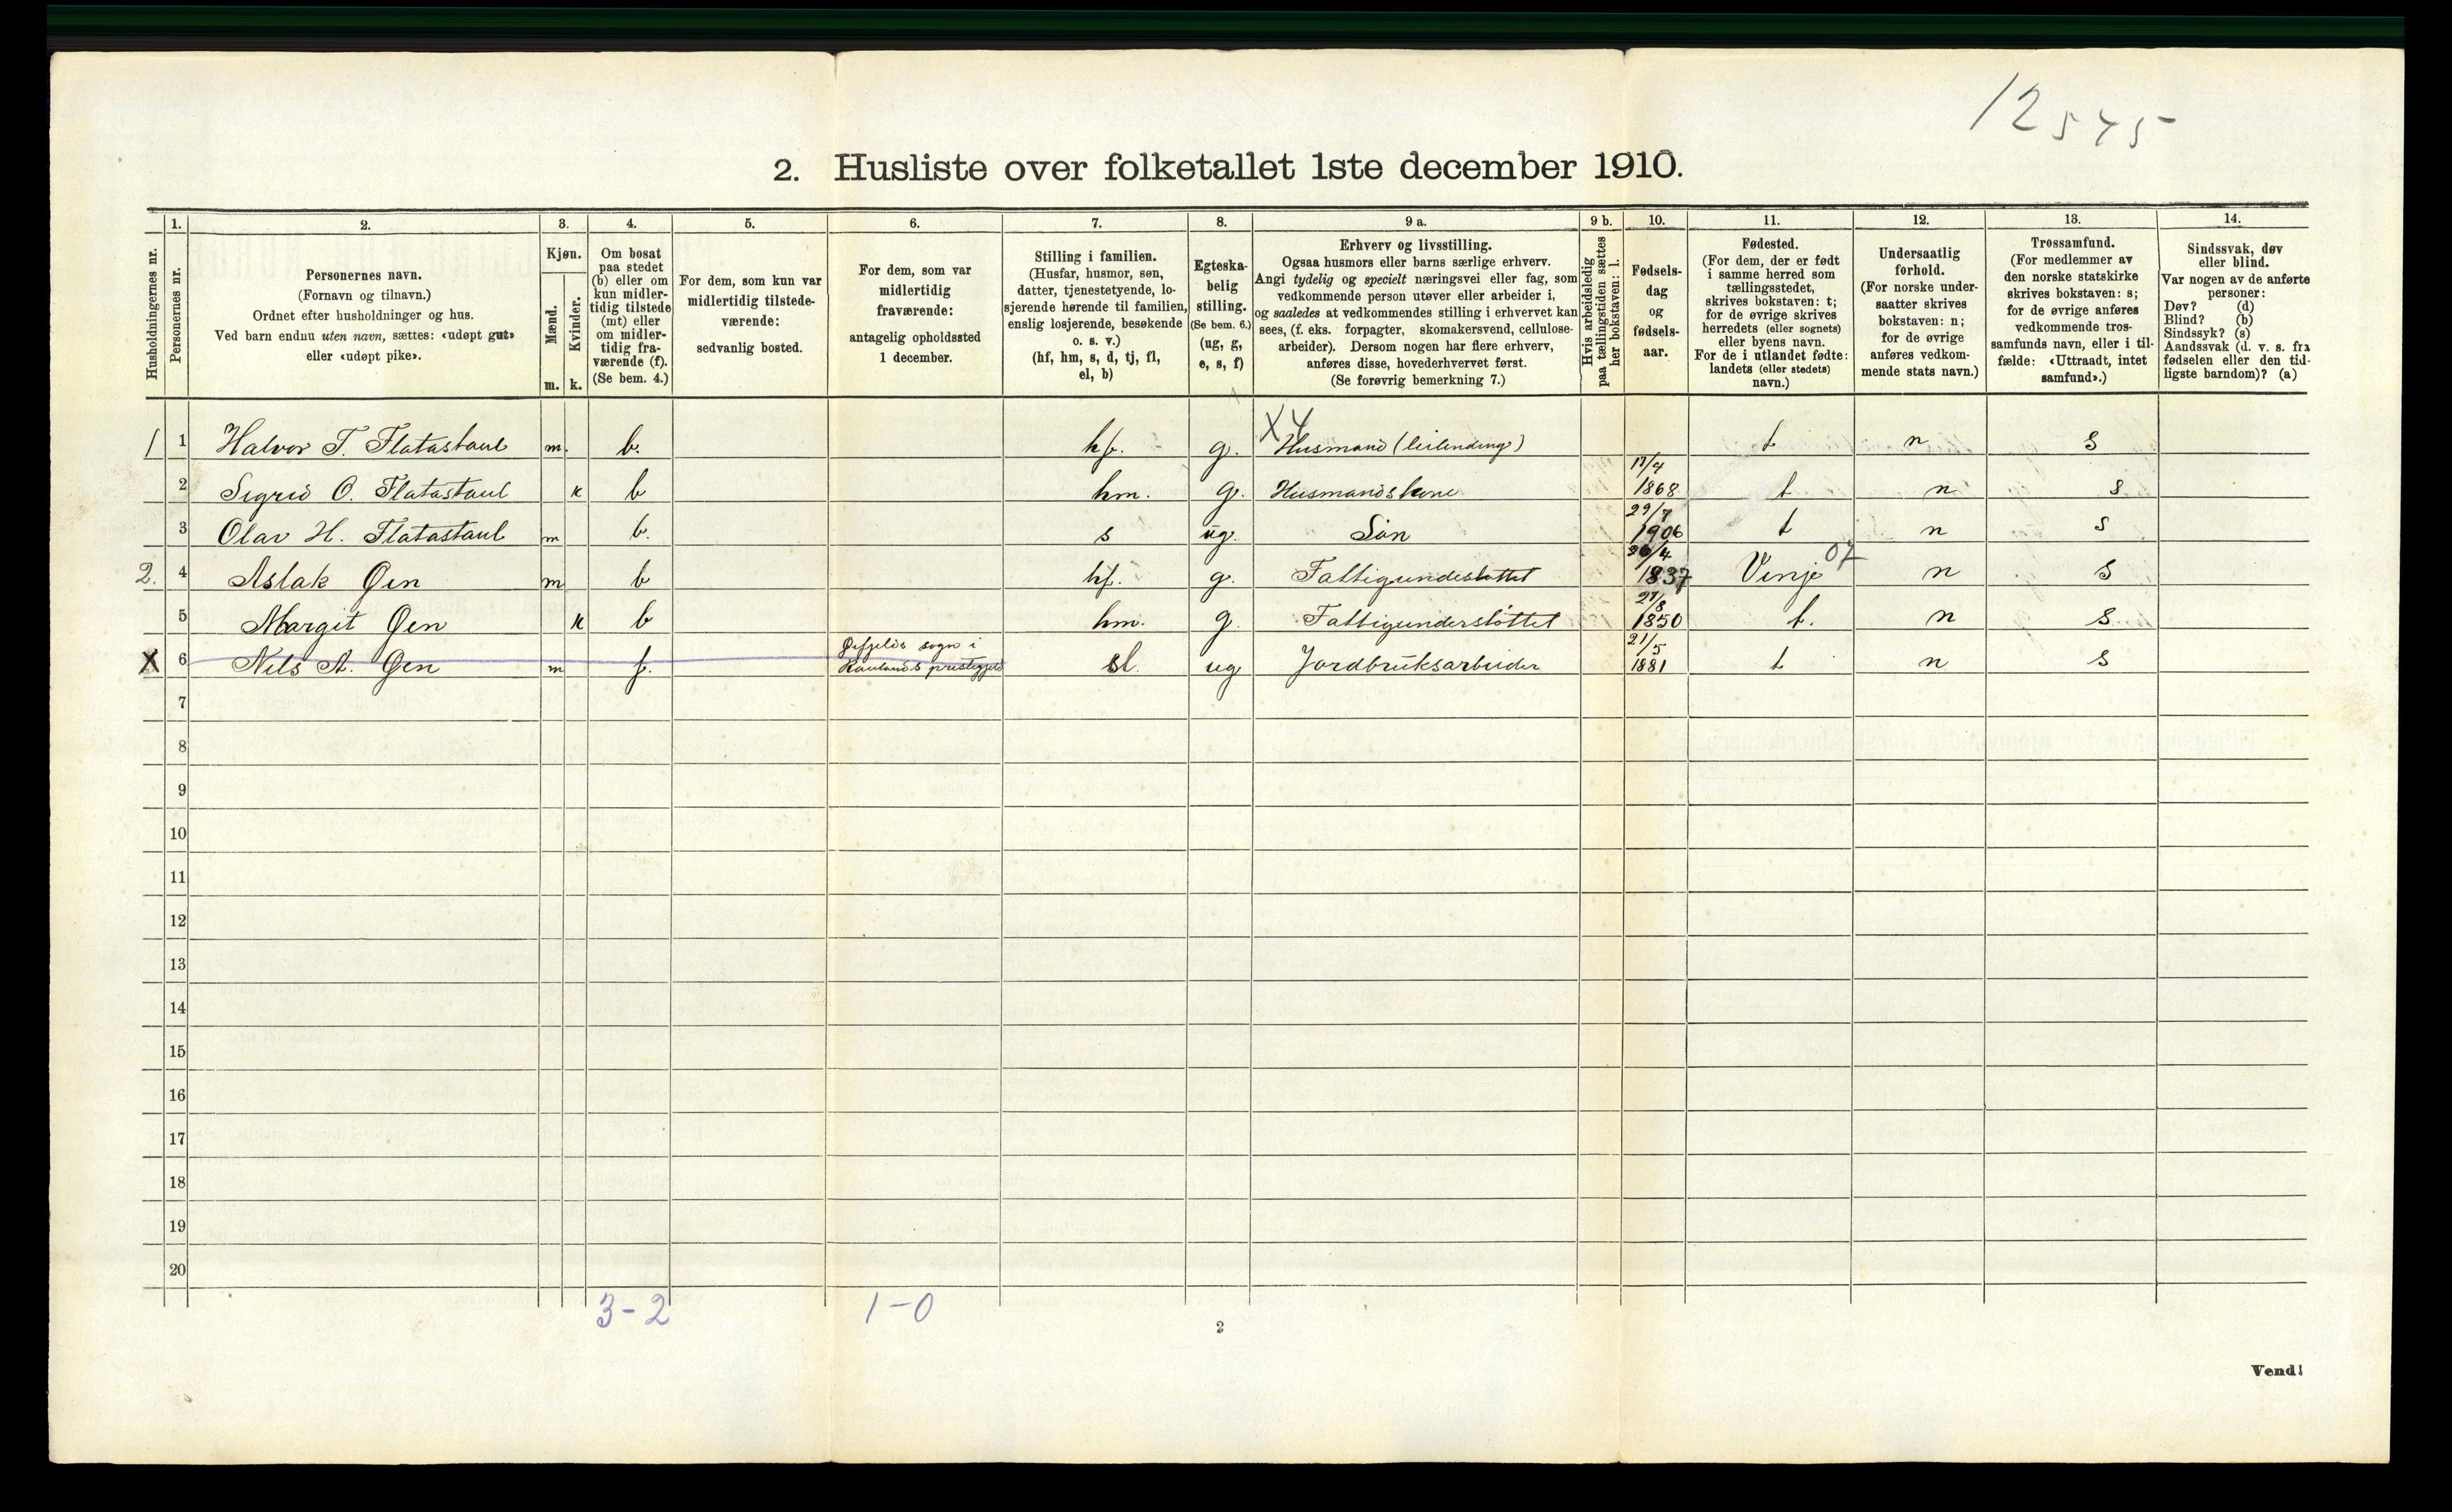 12545
2. Husliste over folketallet 1ste december 1910.
1. 2. 3. 4. 5. 6. 7. 8. 9 a. 9 b. 10. 11. 12. 13. 14.
Husholdningernes nr.
Personernes nr.
Personernes navn.
(Fornavn og tilnavn.)
Ordnet efter husholdninger og hus.
Ved barn endnu uten navn, sættes: «udøpt gut»
eller «udøpt pike».
Kjøn.
Mænd.
Kvinder.
m. k.
Om bosat
paa stedet
(b) eller om
kun midler-
tidig tilstede
(mt) eller
om midler-
tidig fra-
værende (f).
(Se bem. 4.)
For dem, som kun var
midlertidig tilstede-
værende:
sedvanlig bosted.
For dem, som var
midlertidig
fraværende:
antagelig opholdssted
1 december.
Stilling i familien.
(Husfar, husmor, søn,
datter, tjenestetyende, lo-
sjerende hørende til familien,
enslig losjerende, besøkende
o. s. v.)
(hf, hm, s, d, tj, fl,
el, b)
Egteska-
belig
stilling.
(Se bem. 6.)
(ug, g,
e, s, f)
Erhverv og livsstilling.
Ogsaa husmors eller barns særlige erhverv.
Angi tydelig og specielt næringsvei eller fag, som
vedkommende person utøver eller arbeider i,
og saaledes at vedkommendes stilling i erhvervet kan
sees, (f. eks. forpagter, skomakersvend, cellulose-
arbeider). Dersom nogen har flere erhverv,
anføres disse, hovederhvervet først.
(Se forøvrig bemerkning 7.)
Hvis arbeidsledig
paa tællingstiden sættes
her bokstaven: l.
Fødsels-
dag
og
fødsels-
aar.
Fødested.
(For dem, der er født
i samme herred som
tællingsstedet,
skrives bokstaven: t;
for de øvrige skrives
herredets (eller sognets)
eller byens navn.
For de i utlandet fødte:
landets (eller stedets)
navn.)
Undersaatlig
forhold.
(For norske under-
saatter skrives
bokstaven: n;
for de øvrige
anføres vedkom-
mende stats navn.)
Trossamfund.
(For medlemmer av
den norske statskirke
skrives bokstaven: s;
for de øvrige anføres
vedkommende tros-
samfunds navn, eller i til-
fælde: «Uttraadt, intet
samfund».)
Sindssvak, døv
eller blind.
Var nogen av de anførte
personer:
Døv? (d)
Blind? (b)
Sindssyk? (s)
Aandssvak (d. v. s. fra
fødselen eller den tid-
ligste barndom)? (a)
X4
1 1 Halvor T. Flatastaul m. b. hf. g. Husmand (leilending) t n s
2 Sigrid O. Flatastaul k b hm. g. Husmandskone 17/4 1868 t n s
3 Olav H. Flatastaul m b. s ug. Sön 29/7 1906 t n s
2. 4 Aslak Øen m b hf. g. Fattigunderstöttet 26/4 1837 Vinje 07 n s
5 Margit Øen k b hm. g. Fattigunderstöttet 27/8 1850 t. n s
X 6 Nils A. Øen m f. Øifjelds sogn i
Raulands prestegjeld sl. ug Jordbruksarbeider 21/5 1881 t n s
7
8
9
10
11
12
13
14
15
16
17
18
19
20
3-2 1-0
2
Vend!